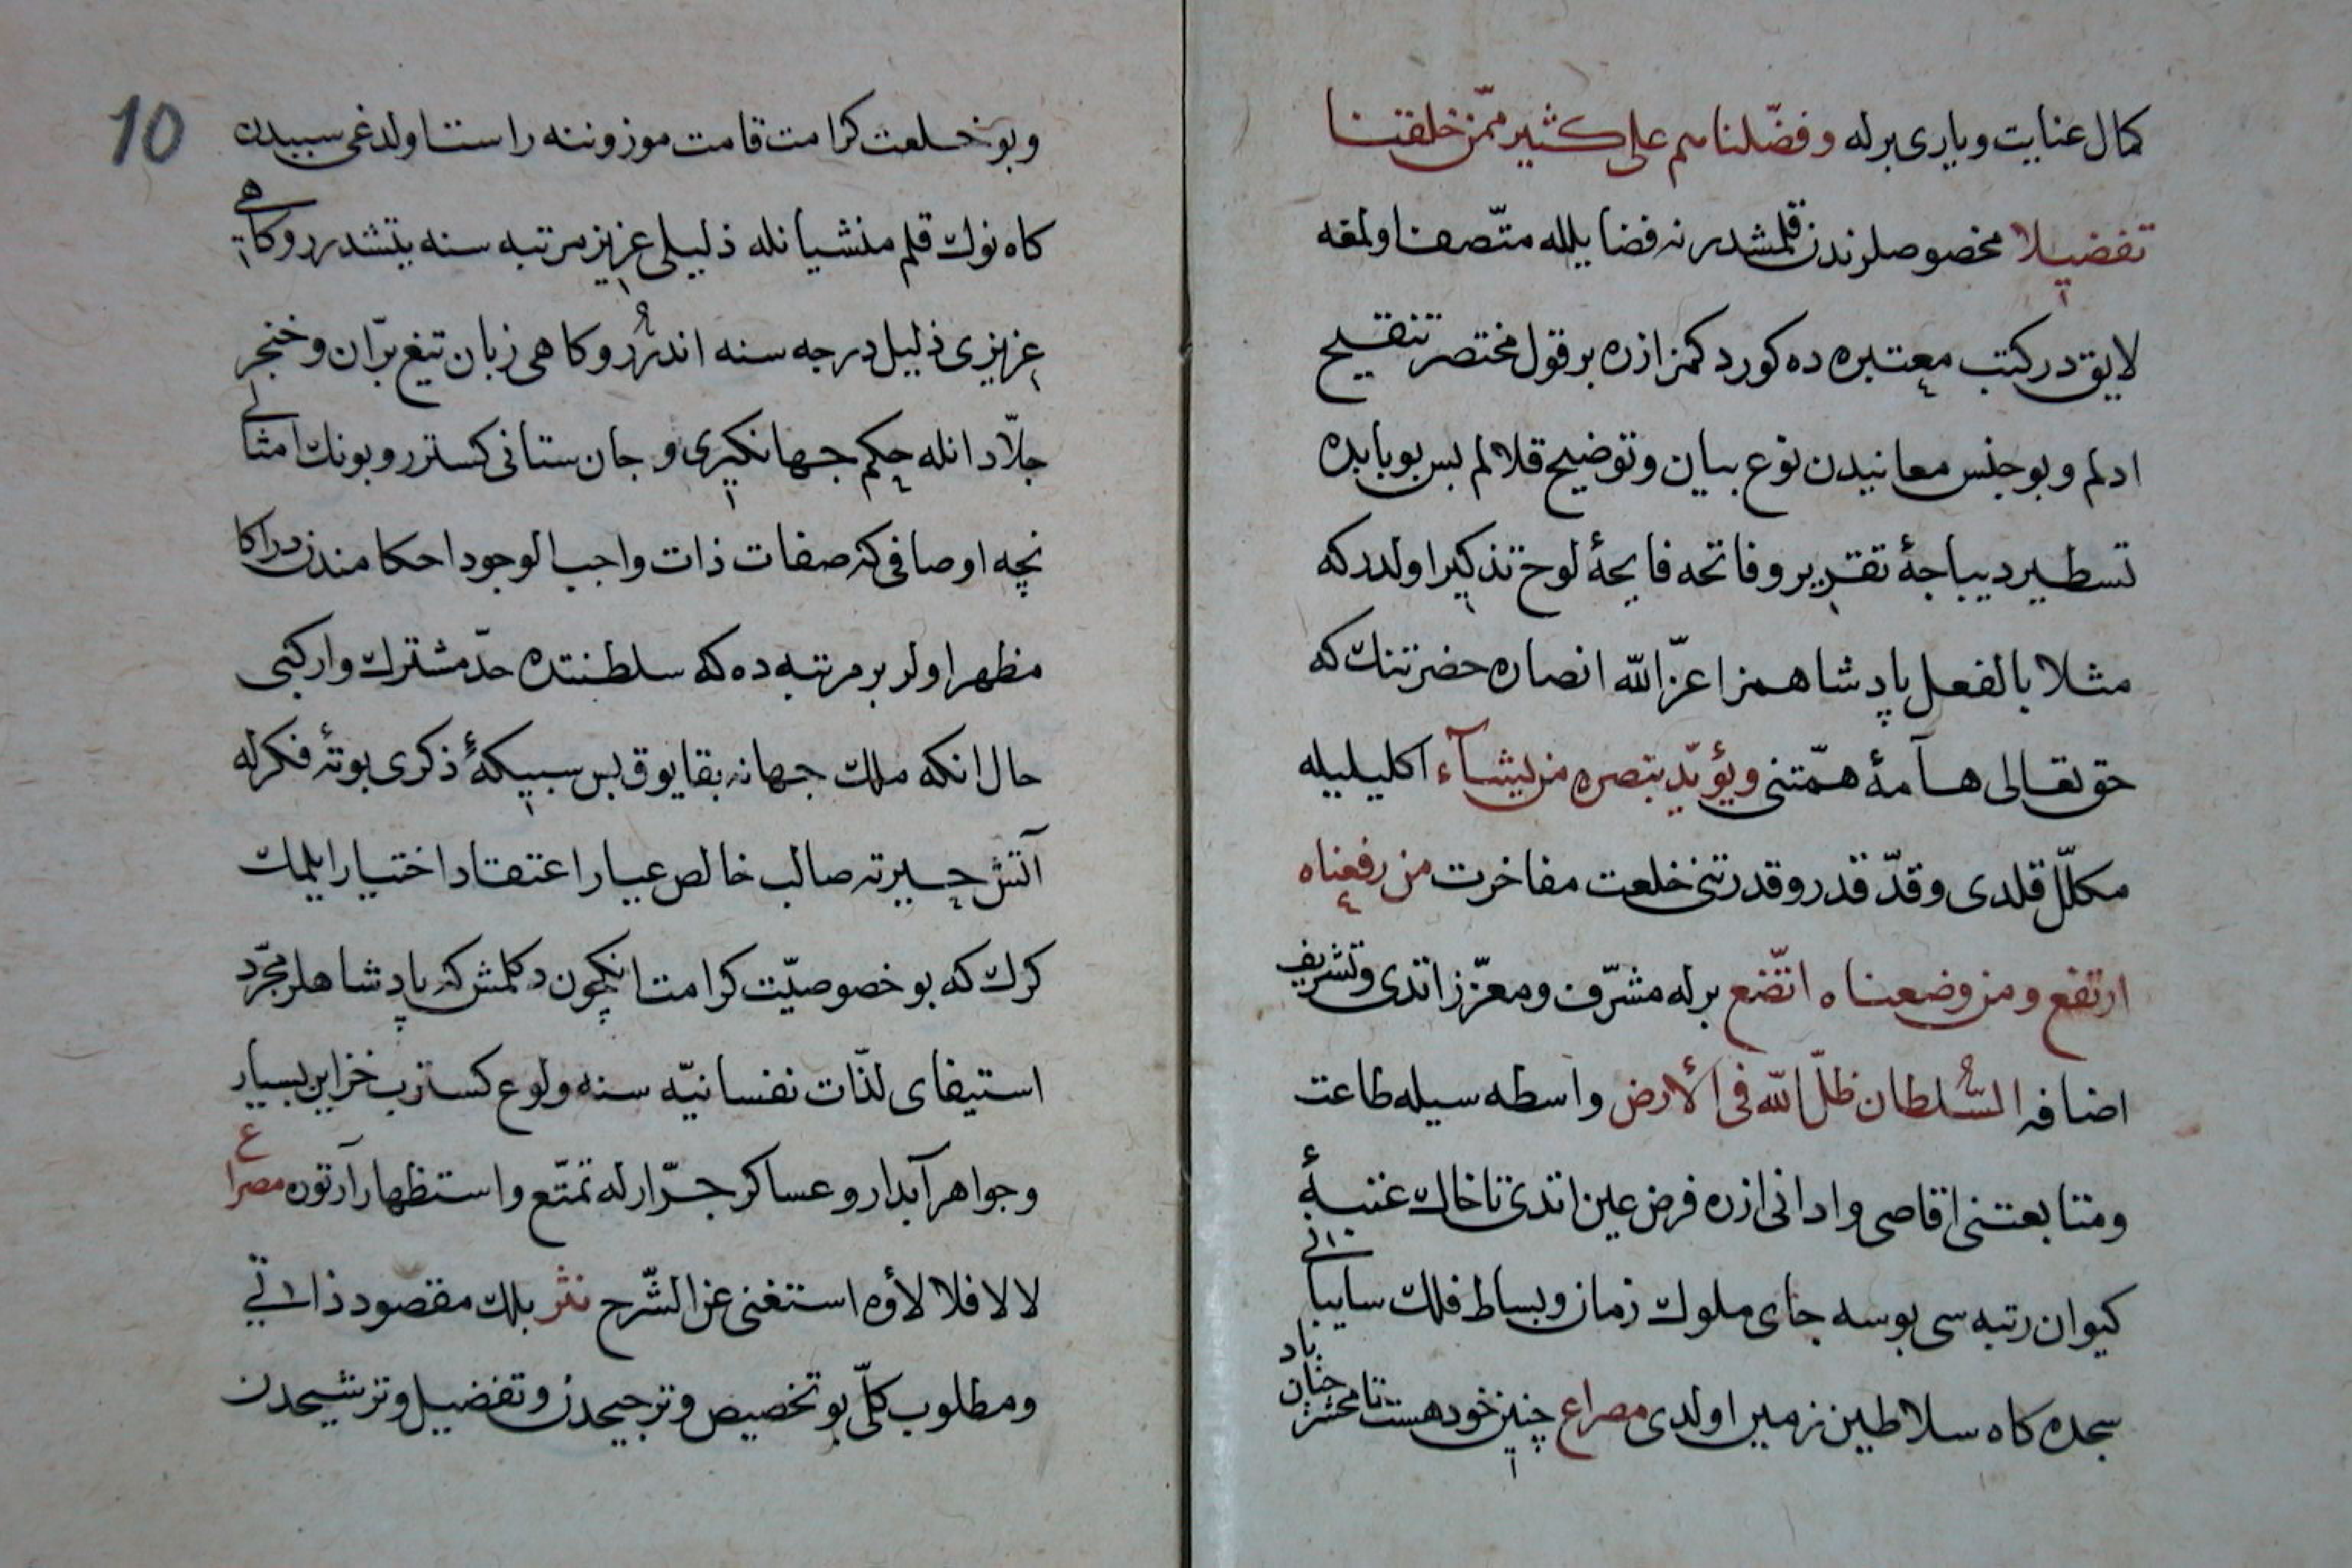 كمال عنايت و يارى برله و فضّلناهم على كثير ممّن خلقنا
تفضيلا مخصوصلرندن قلمشدر نه فضايلله متّصف اولمغه
لايق در كتب معتبره ده كوردكمز ازره بر قول مختصر تنقيح
ادلم و بو جنس معانيدن نوع بيان و توضيح قلالم بس بو بابده
تسطير ديباجهٔ تقرير و فاتحه فايحهٔ لوح تذكير اولدر كه
مثلا بالفعل پادشاهمز اعزّ الله انصاره حضرتنك كه
حق تعالى هامهٔ همّتنى و يؤيّد بنصره من يشآء اكليليله
مكلّل قلدى و قدّ قدر و قدرتنى خلعت مفاخرت من رفعناه
ارتفع و من وضعناه اتّضع برله مشرّف و معزّز اتدى و تشريف
اضافه السّلطان ظلّ الله فى الأرض واسطه سيله طاعت
و متابعتنى اقاصى و ادانى ازره فرض عين اتدى تا خاك عتبهٔ
كيوان رتبه سى بوسه جاى ملوك زمان و بساط فلك سايبانى
سجده كاه سلاطين زمين اولدى مصراع چنين خود هست تا محشر چنان باد
10
و بو خلعت كرامت قامت موزوننه راست اولدغى سببدن
كاه نوك قلم منشيانله ذليلى عزيز مرتبه سنه يتشدرر و كاهى
عزيزى ذليل درجه سنه اندرر و كاهى زبان تيغ برّان و خنجر
جلّادانله حكم جهانكيرى و جان ستانى كسترر و بونك امثالى
نچه اوصافى كه صفات ذات واجب الوجود احكامندن در اكا
مظهر اولر بر مرتبه ده كه سلطنتده حدّ مشترك وار كبى
حال انكه ملك جهانه بقا يوق بس سبيكهٔ ذكرى بوتهٔ فكرله
آتش حيرته صالب خالص عيار اعتقاد اختيار ايلمك
كرك كه بو خصوصيّت كرامت انكچون دكلمش كه پادشاهلر مجرّد
استيفاى لذّات نفسانيّه سنه ولوع كسترب خزاين بسيار
و جواهر آبدار و عساكر جرّارله تمتّع و استظهار آرتوره مصراع
لا لا فلا لأوه استغنى عن الشّرح نثر بلك مقصود ذاتى
و مطلوب كلّى بو تخصيص و ترجيحدن و تفضيل و ترشيحدن